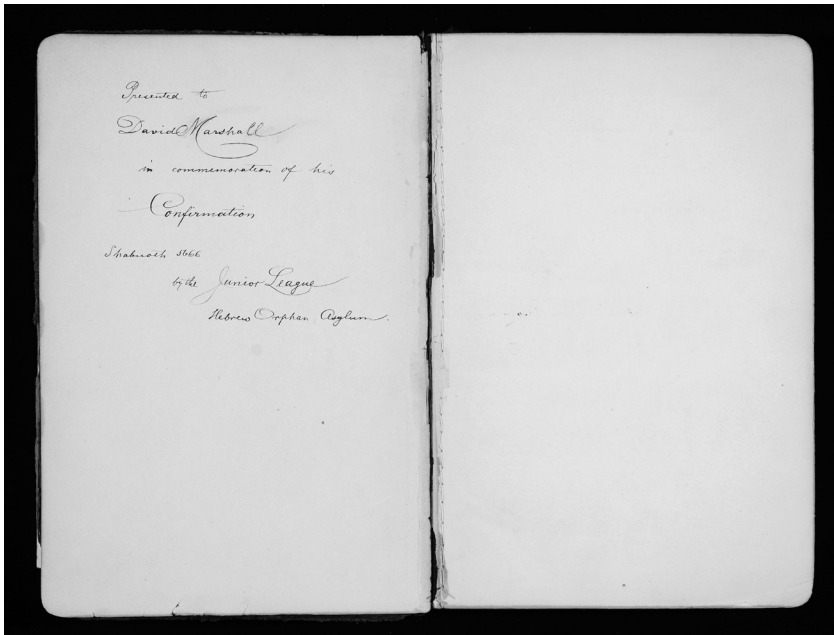 Presented to
David Marshall
in commemoration of his
Confirmation
Shabuoth 5666
by the Junior League
Hebrew Orphan Asylum.